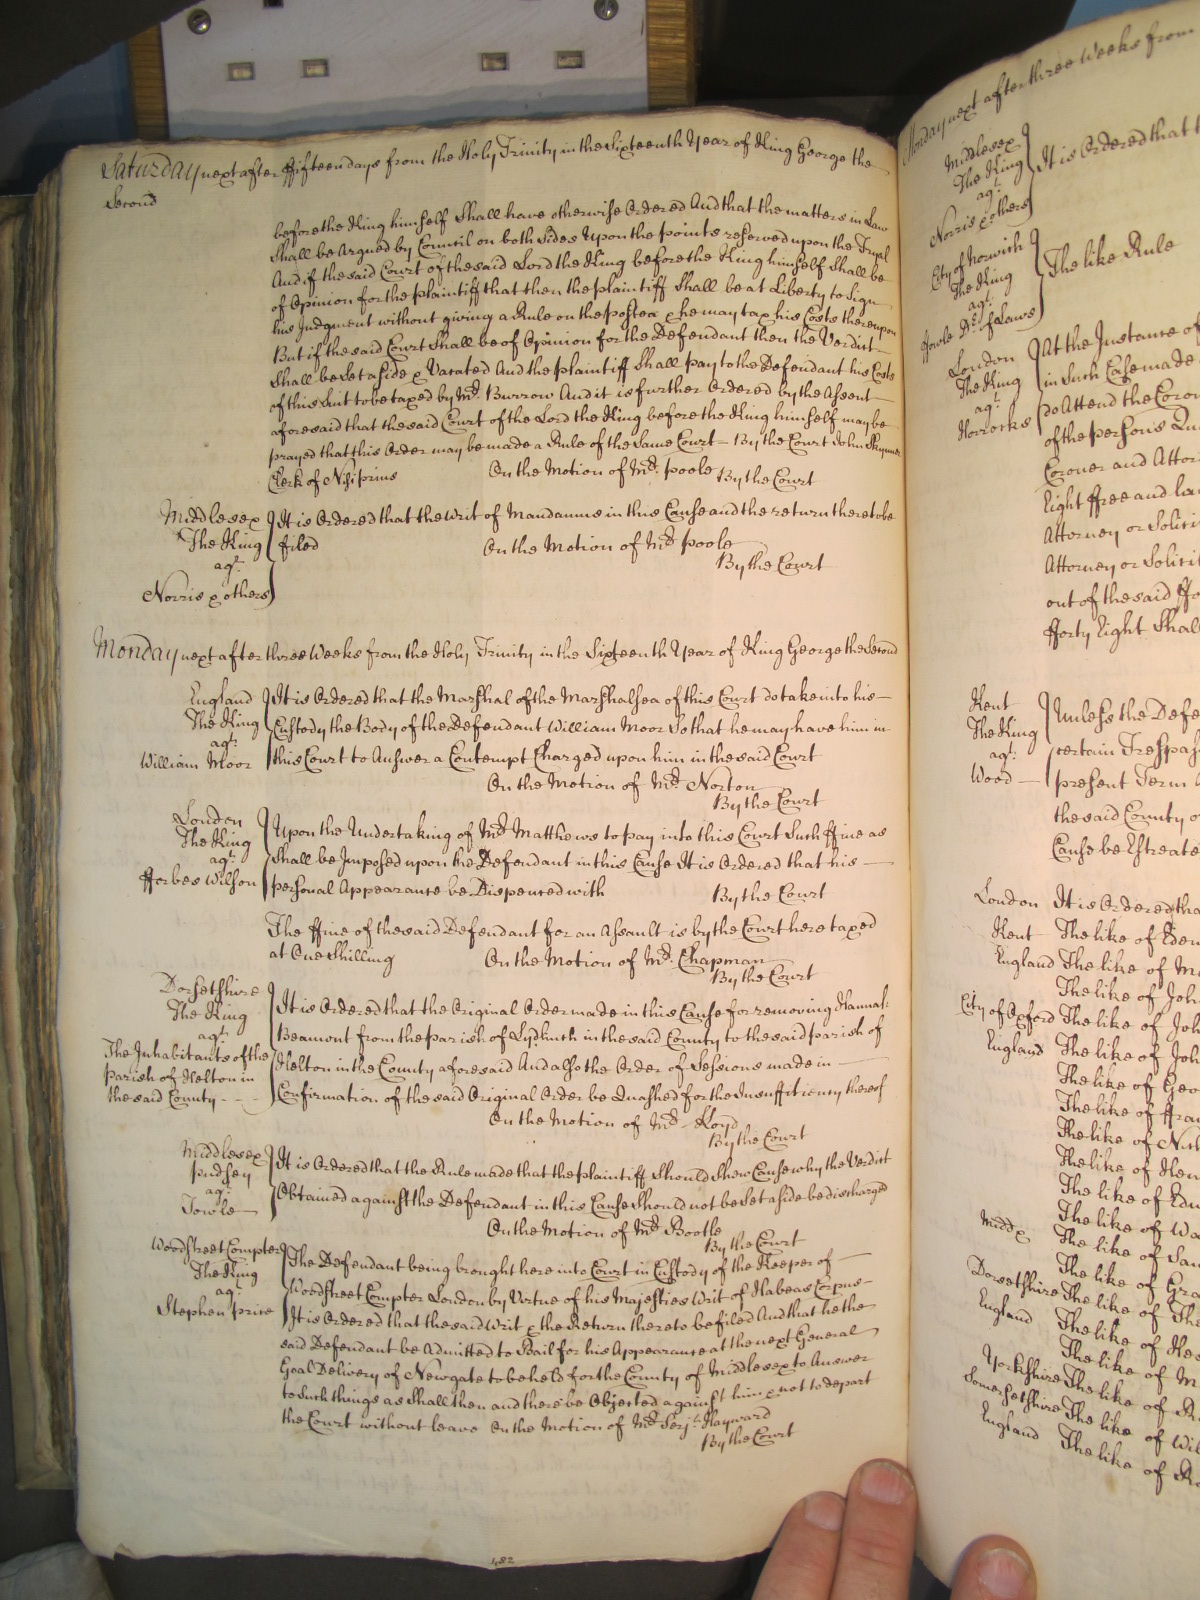 Saturday next after ffifteen days from the Holy Trinity in the Sixteenth Year of King George the
Second
before the King himself Shall have otherwise Ordered And that the matters in Law
Shall be Argued by Council on both Sides Upon the points reserved upon the Tryal
And if the said Court of the said Lord the King before the King himself Shall be
of Opinion for the plaintiff that then the plaintiff Shall be at Liberty to Sign
his Judgment without giving a Rule on the postea & he may tax his Costs thereupon
But if the said Court Shall be of Opinion for the Defendant then the Verdict
Shall be Set aside & Vacated And the plaintiff Shall pay to the Defendant his Costs
of this Suit to be taxed by Mr. Burrow And it is further Ordered by the Assent
aforesaid that the said Court of the Lord the King before the King himself may be
prayed that this Order may be made a Rule of the Same Court – By the Court John Skynner
Clerk of Nisi prius On the Motion of Mr. poole By the Court
Middlesex It is Ordered that the Writ of Mandamus in this Cause and the return thereto be
The King filed On the Motion of Mr. poole
agt. By the Court
Norris & others
Monday next after three Weeks from the Holy Trinity in the Sixteenth Year of King George the Second
England It is Ordered that the Marshal of the Marshalsea of this Court do take into his
The King Custody the Body of the Defendant William Moor So that he may have him in
agt.
William Moor this Court to Answer a Contempt Charged upon him in the said Court
On the Motion of Mr. Norton
By the Court
London Upon the Undertaking of Mr. Matthews to pay into this Court Such ffine as
The King
agt. Shall be Imposed upon the Defendant in this Cause It is Ordered that his
fforbes Wilson personal Appearance be Dispenced with By the Court
The ffine of the said Defendant for an Assault is by the Court here taxed
at One Shilling On the Motion of Mr. Chapman
By the Court
Dorsetshire
The King It is Ordered that the Original Order made in this Cause for removing Hannah
agt. Beamont from the parish of Lydlinch in the said County to the said parish of
The Inhabitants of the Helton in the County aforesaid And also the Order of Sessions made in
parish of Helton in
the said County - - - Confirmation of the said Original Order be Quashed for the Insufficiency thereof
On the Motion of Mr. Lloyd
By the Court
Middlesex It is Ordered that the Rule made that the plaintiff Should Shew Cause why the Verdict
pudsey
agt. Obtained against the Defendant in this Cause Should not be Set aside be discharged
Towle
On the Motion of Mr. Bootle
By the Court
Woodstreet Compter The Defendant being brought here into Court in Custody of the Keeper of
The King Woodstreet Compter London by Virtue of his Majesties Writ of Habeas Corpus
agt.
Stephen price It is Ordered that the said Writ & the Return thereto be filed And that he the
said Defendant be Admitted to Bail for his Appearance at the next General
Goal Delivery of Newgate to be held for the County of Middlesex to Answer
to Such things as Shall then and there be Objected against him & not to depart
the Court without leave On the Motion of Mr. Serjt. Hayward
By the Court
482
Monday next after three Weeks from
Middlesex It is Ordered that
The King
agt.
Norris & others
City of Norwich The like Rule
The King
agt.
London At the Instance of
The King in Such Case made
agt. do Attend the Coron
Horrocks of the persons
Coroner and Attor
Eight ffree and la
Attorney or Solicit
Attorney or Solicit
out of the said
fforty Eight Shall
Kent Unless the Defe
The King certain Trespas
agt.
Wood present Term
the said County o
Cause be Estreate
London It is Ordered tha
Kent The like of Edw
England The like of M
The like of Joh
City of Oxford The like of Joh
England The like of Joh
The like of Geo
The like of ffra
The like of Nich
The like of Hen
The like of Edw
The like of Wa
Middx The like of Sam
The like of Gra
Dorsetshire The like of The
England The like of Hes
The like of M
Yorkshire The like of R
Somersetshire The like of Wil
England The like of R